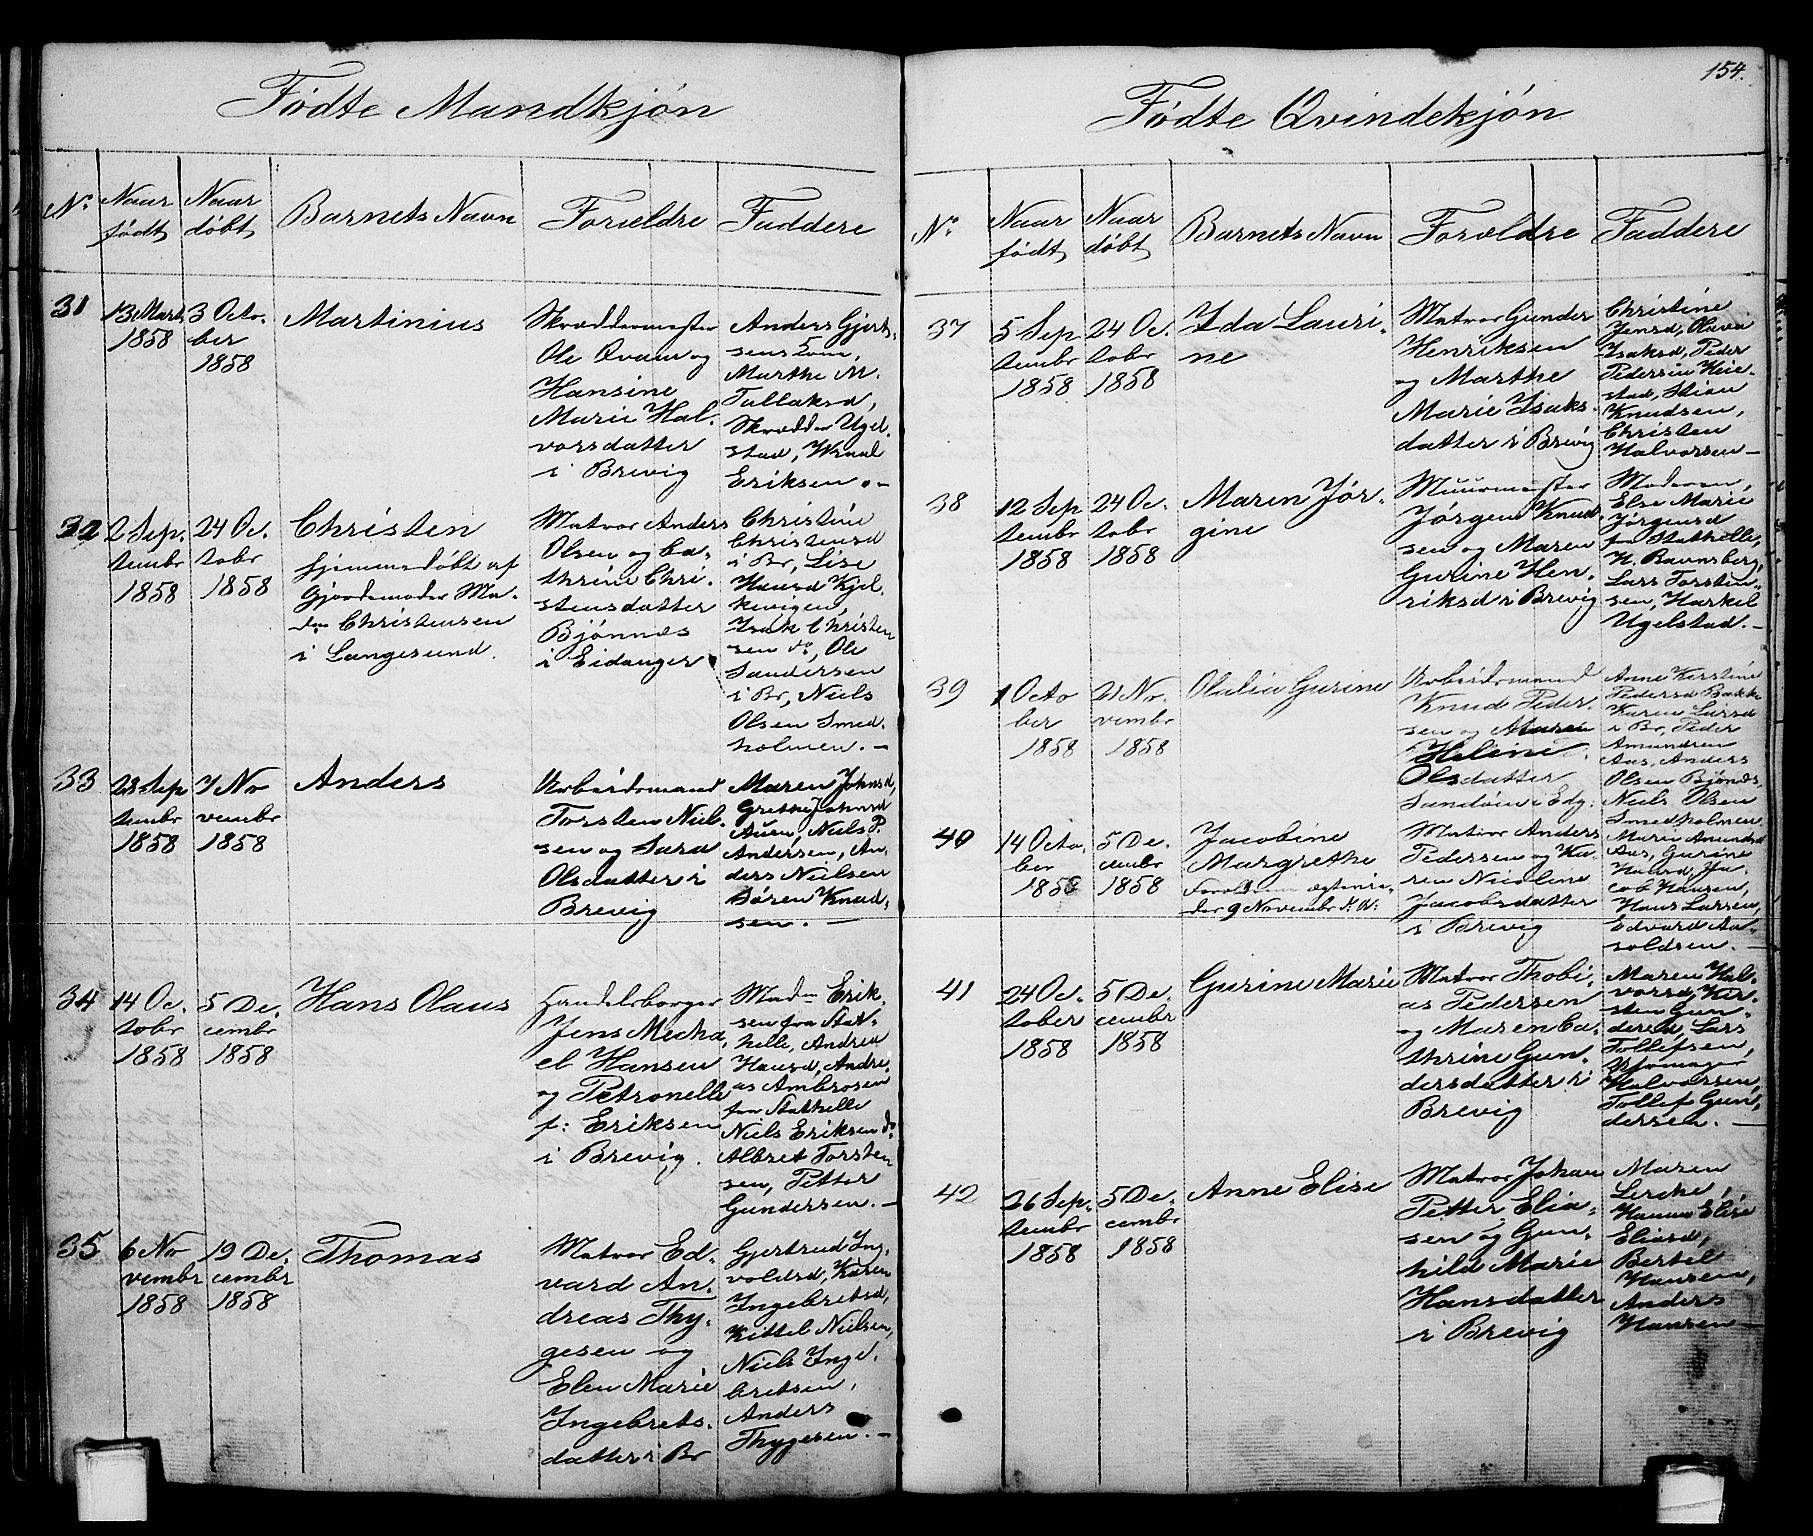 154.
Fødte Mandkjøn
No. Naar født Naar døbt Barnets Navn Forældre Faddere
31
13 Marts
1858
3 Octo-
ber
1858
Martinius
Skræddermester
Ole Qvam og
Hansine
Marie Hal-
vorsdatter
i Brevig
Anders Gjert-
sens Kone,
Marthe M.
Tallaksd,
Skrædder Ugel-
stad, Wraal
Eriksen.-
32
2 Sep-
tembr
1858
24 Oc-
tobr
1858
Christen
hjemmedøbt af
Gjordemoder Ma-
dm Christensen
i Langesund.
Matros Anders
Olsen og Ca-
thrine Chri-
stensdatter
Bjønnæs
i Eidanger
Christine
Christensd
i Br, Lise
Hansd Kjel-
kevigen,
Isak Christen
sen do, Ole
Sandersen
i Br, Niels
Olsen Smed-
holmen.-
33
28 Sep
tembr
1858
7 No
vembr
1858
Anders
Arbeidsmand
Torsten Niel-
sen og Sara
Olsdatter i
Brevig
Maren Johnsd,
Grethe Johnsd
Auen, Niels P.
Andersen, An-
ders Nielsen
Søren Knud-
sen.-
34
14 Oc-
tobr
1858
5 De-
cembr
1858
Hans Olaus
Handelsborger
Jens Micha
el Hansen
og Petronelle
f: Eriksen
i Brevig.
Madm Erik-
sen fra Stat-
helle, Andrea
Hansd, Andre-
as Ambrosen
fra Stathelle
Niels Eriksen do
Albret Torsten
sen, Petter
Gundersen.-
35
6 No
vembr
1858
19 De-
cembr
1858
Thomas
Matros Ed-
vard An-
dreas Thy-
gesen og
Elen Marie
Ingebrets-
datter i Br
Gjertrud Ing-
voldsd, Karen
Ingebretsd,
Kittel Nielsen,
Niels Inge-
bretsen,
Anders
Thygesen.-
Fødte Qvindekjøn
No. Naar født Naar døbt Barnets Navn Forældre Faddere
37
5 Sep
tembr
1858
24 Oc-
tobr
1858
Ida Lauri-
ne
Matros Gunder
Henriksen
og Marthe
Marie Isaks-
datter i Brevig
Christine
Jensd, Olava
Isaksd, Peder
Pedersen Heie-
stad, Stian
Knudsen,
Christen
Halvorsen-
38
12 Sep
tembr
1858
24 Oc-
tobr
1858
Maren Jør-
gine
Muurmester
Jørgen Knud-
sen og Maren
Gurine Hen-
riksd i Brevig
Moderen,
Else Marie
Jørgensd
fra Stathelle,
H. Ravnsberg,
Lars Torsten-
sen, Harkel
Ugelstad.-
39
1 Octo
ber
1858
21 No-
vembr
1858
Olalia Gurine
Arbeidsmand
Knud Peder-
sen og Maren
Helene
Olsdatter
Sandøen i Edg.
Anne Kirstine
Pedersd Bakke
Karen Larsd
i Br, Peder
Amundsen
Aas, Anders
Olsen Bjønæs,
Niels Olsen
Smedholmen
40
14 Octo-
ber
1858
5 De-
cembr
1858
Jacobine
Margrethe
Forældrene ægtevie-
der 9 Novembr d: A:
Matros Anders
Pedersen og Ka-
ren Nicoline
Jacobsdatter
i Brevig
Maren Amundsd
Aas, Gurine
Halvd, Ja-
cob Hansen,
Hans Larsen,
Edvard Aa-
soldsen.-
41
24 Oc-
tober
1858
5 De-
cembr
1858
Gurine Marie
Matros Thobi-
as Pedersen
og Maren Ca-
thrine Gun-
dersdatter i
Brevig
Maren Hal-
vorsd, Kir-
sten Gun-
dersd, Lars
Tollefsen,
Halvorsen,
Tollef Gun-
dersen.-
42
26 Sep-
tembr
1858
5 De-
cembr
1858
Anne Elise
Matros Johan
Petter Elia-
sen og Gun-
hild Marie
Hansdatter
i Brevig
Maren
Lerche,
Hanna Elise
Eliasd,
Bertel
Hansen,
Anders
Hansen-